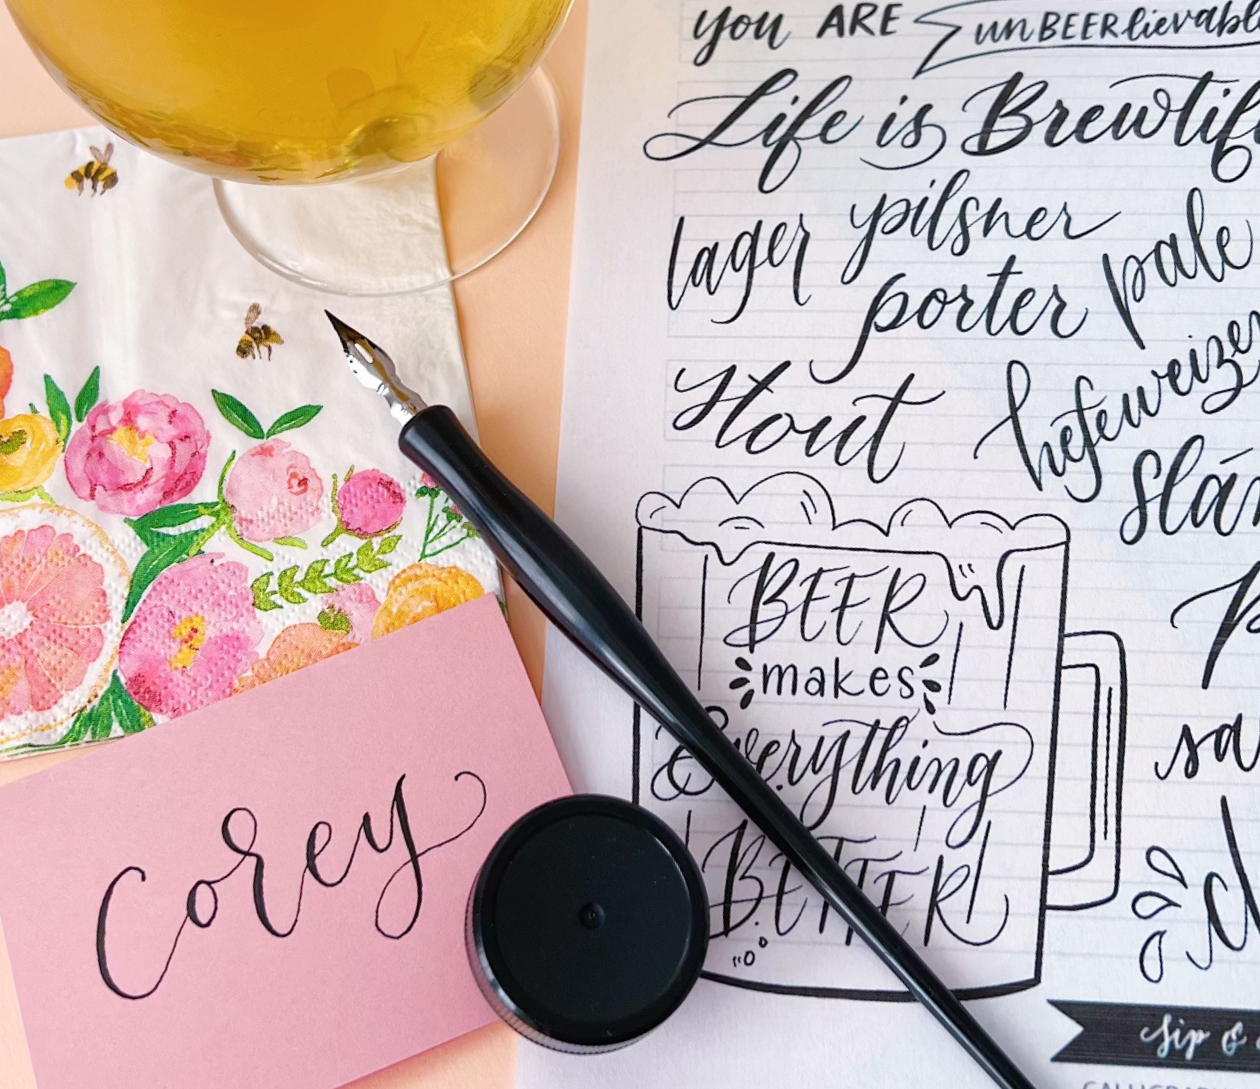 you ARE unBEERlievabl
Life is Brewtif
lager pilsner pale
porter
Stout hefeweizen
Slá
BEER
makes
Everything
BETTER
sa
Corey
Sip &